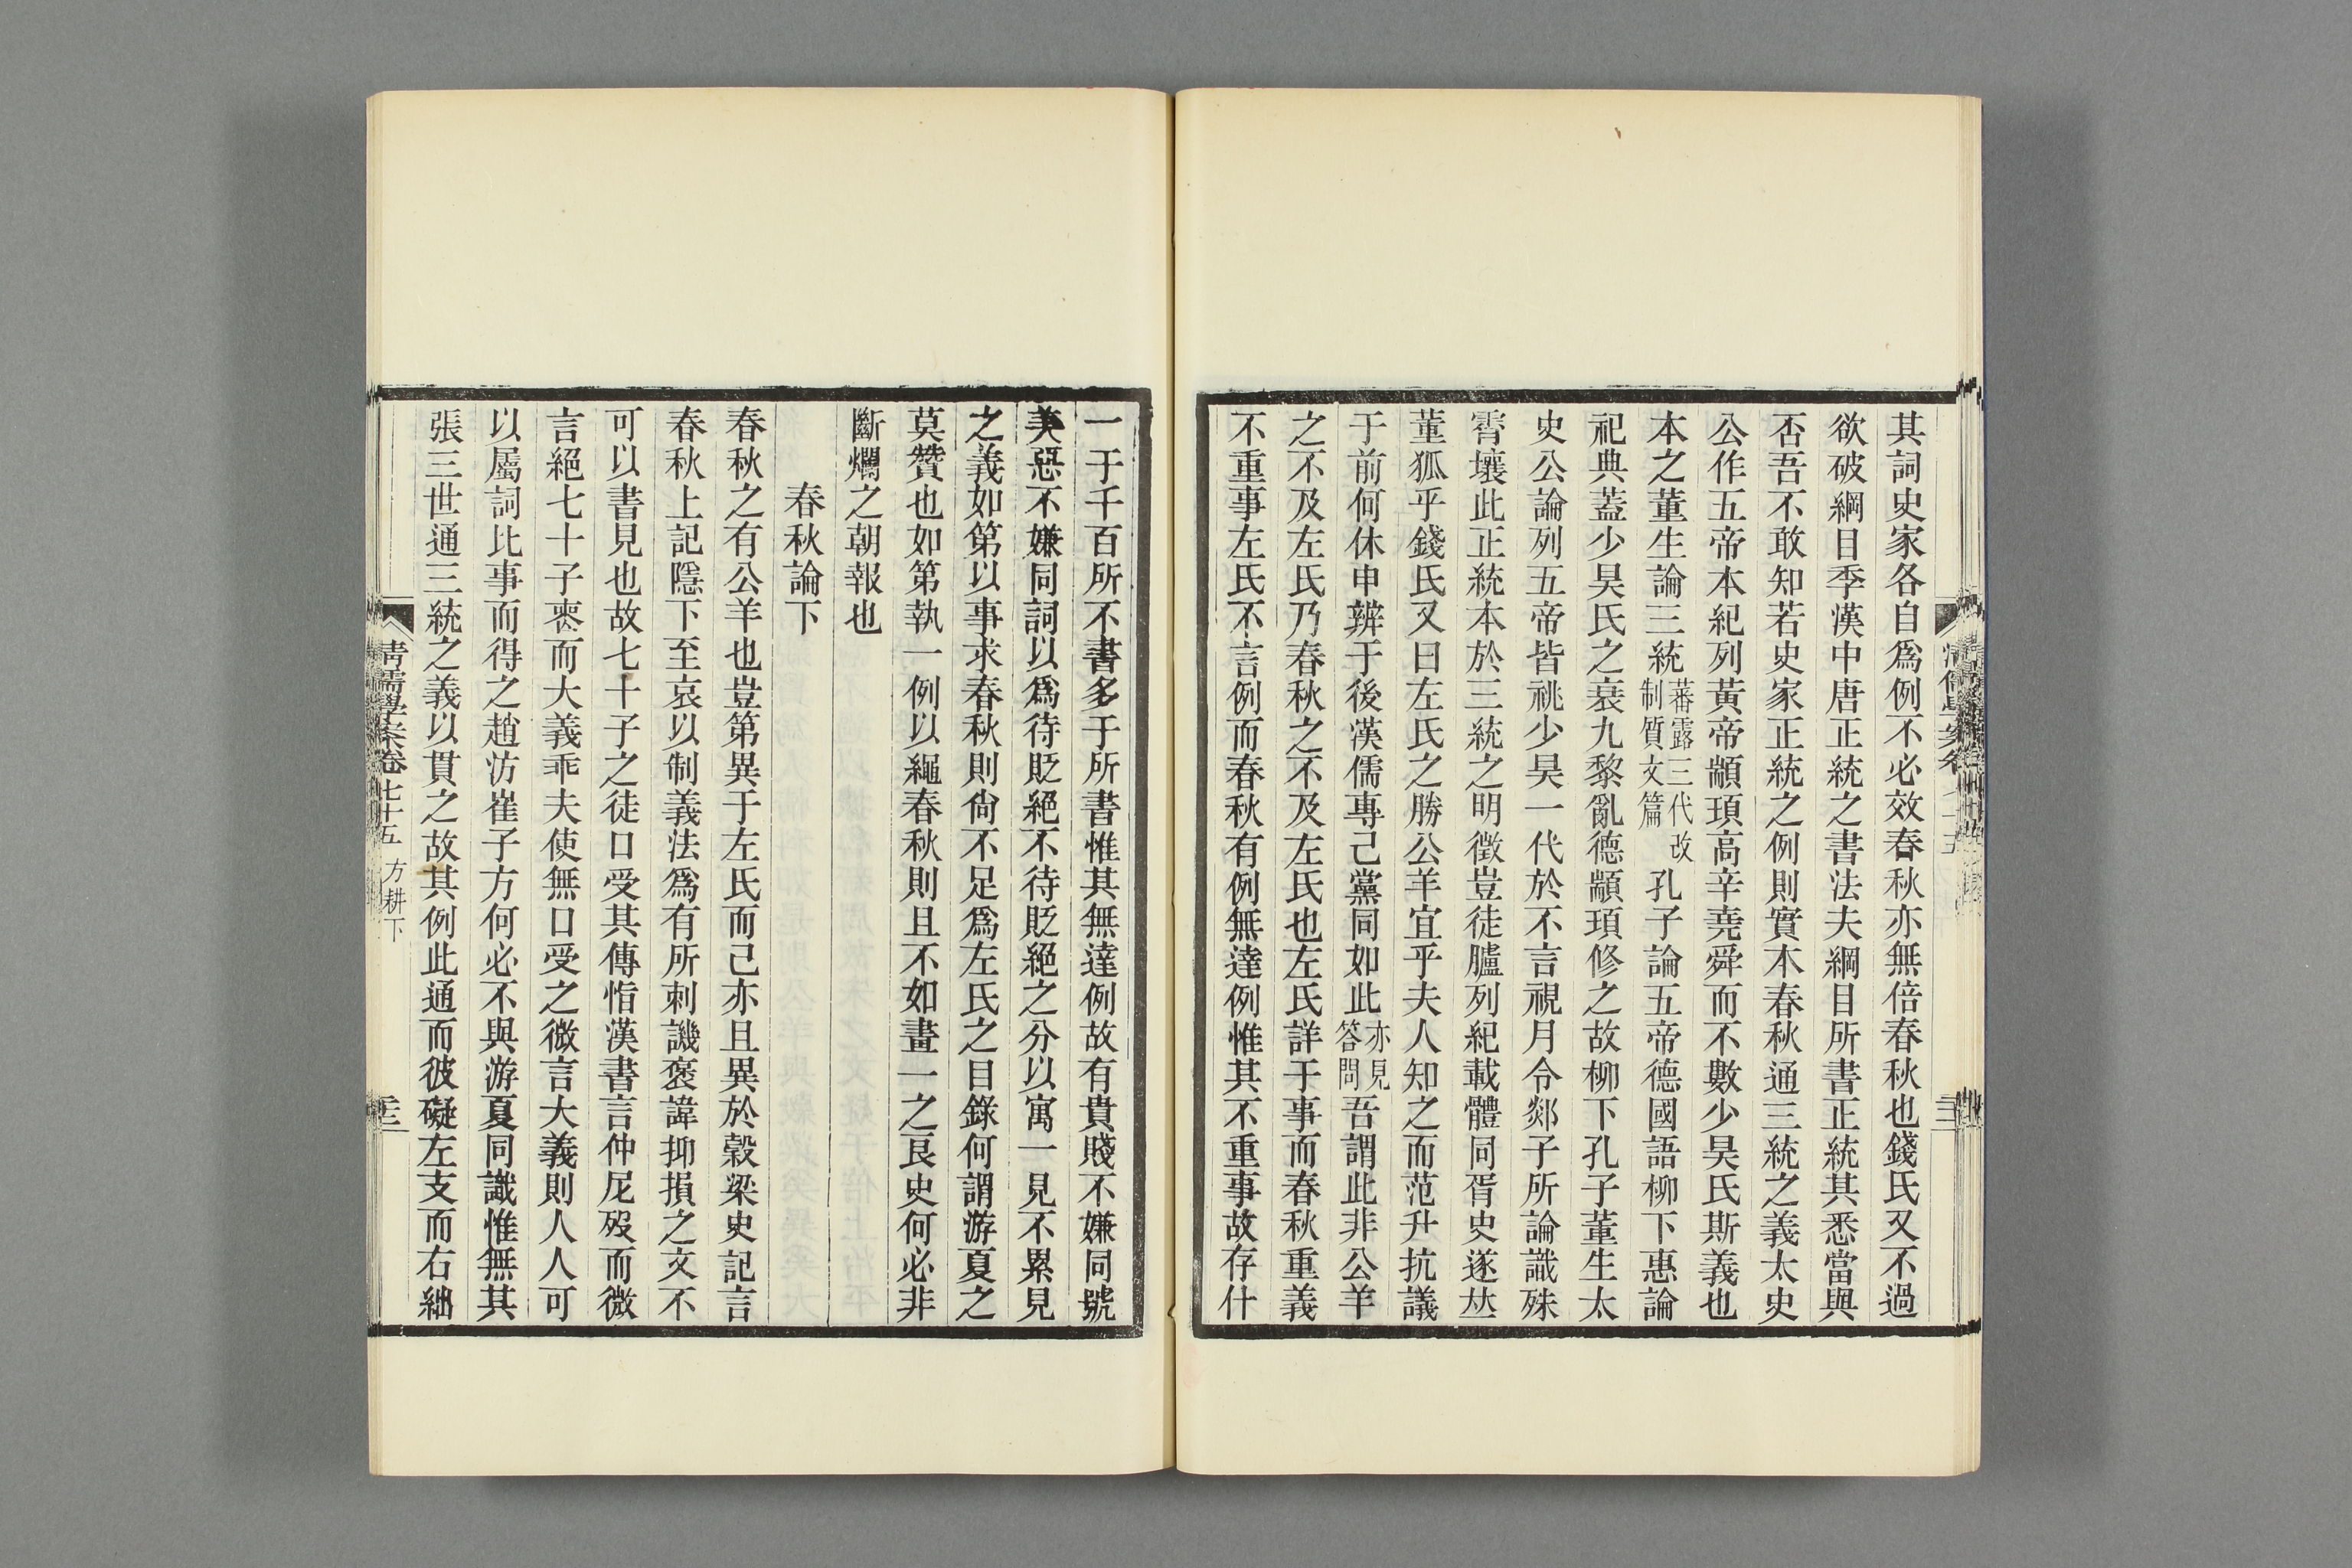 其詞史家各自爲例不必效春秋亦無倍春秋也錢氏又不過
欲破綱目季漢中唐正統之書法夫綱目所書正統其悉當與
否吾不敢知若史家正統之例則實本春秋通三統之義太史
公作五帝本紀列黃帝顓頊高辛堯舜而不數少昊氏斯義也
本之董生論三統蕃露三代改制質文篇孔子論五帝德國語柳下惠論
祀典蓋少昊氏之衰九黎亂德顓頊修之故柳下孔子董生太
史公論列五帝皆祧少昊一代於不言視月令郯子所論識殊
霄壤此正統本於三統之明徵豈徒臚列紀載體同胥史遂夶
董狐乎錢氏又曰左氏之勝公羊宜乎夫人知之而范升抗議
于前何休申辨于後漢儒專己黨同如此亦見答問吾謂此非公羊
之不及左氏乃春秋之不及左氏也左氏詳于事而春秋重義
不重事左氏不言例而春秋有例無達例惟其不重事故存什
一于千百所不書多于所書惟其無達例故有貴賤不嫌同號
美惡不嫌同詞以爲待貶絕不待貶絕之分以寓一見不累見
之義如第以事求春秋則尙不足爲左氏之目錄何謂游夏之
莫贊也如第執一例以繩春秋則且不如畫一之良史何必非
斷爛之朝報也
春秋論下
春秋之有公羊也豈第異于左氏而己亦且異於穀梁史記言
春秋上記隱下至哀以制義法爲有所刺譏褒諱抑損之文不
可以書見也故七十子之徒口受其傳恉漢書言仲尼歿而微
言絕七十子喪而大義乖夫使無口受之微言大義則人人可
以屬詞比事而得之趙汸崔子方何必不與游夏同識惟無其
張三世通三統之義以貫之故其例此通而彼礙左支而右絀
清儒學案卷七十五 方耕下